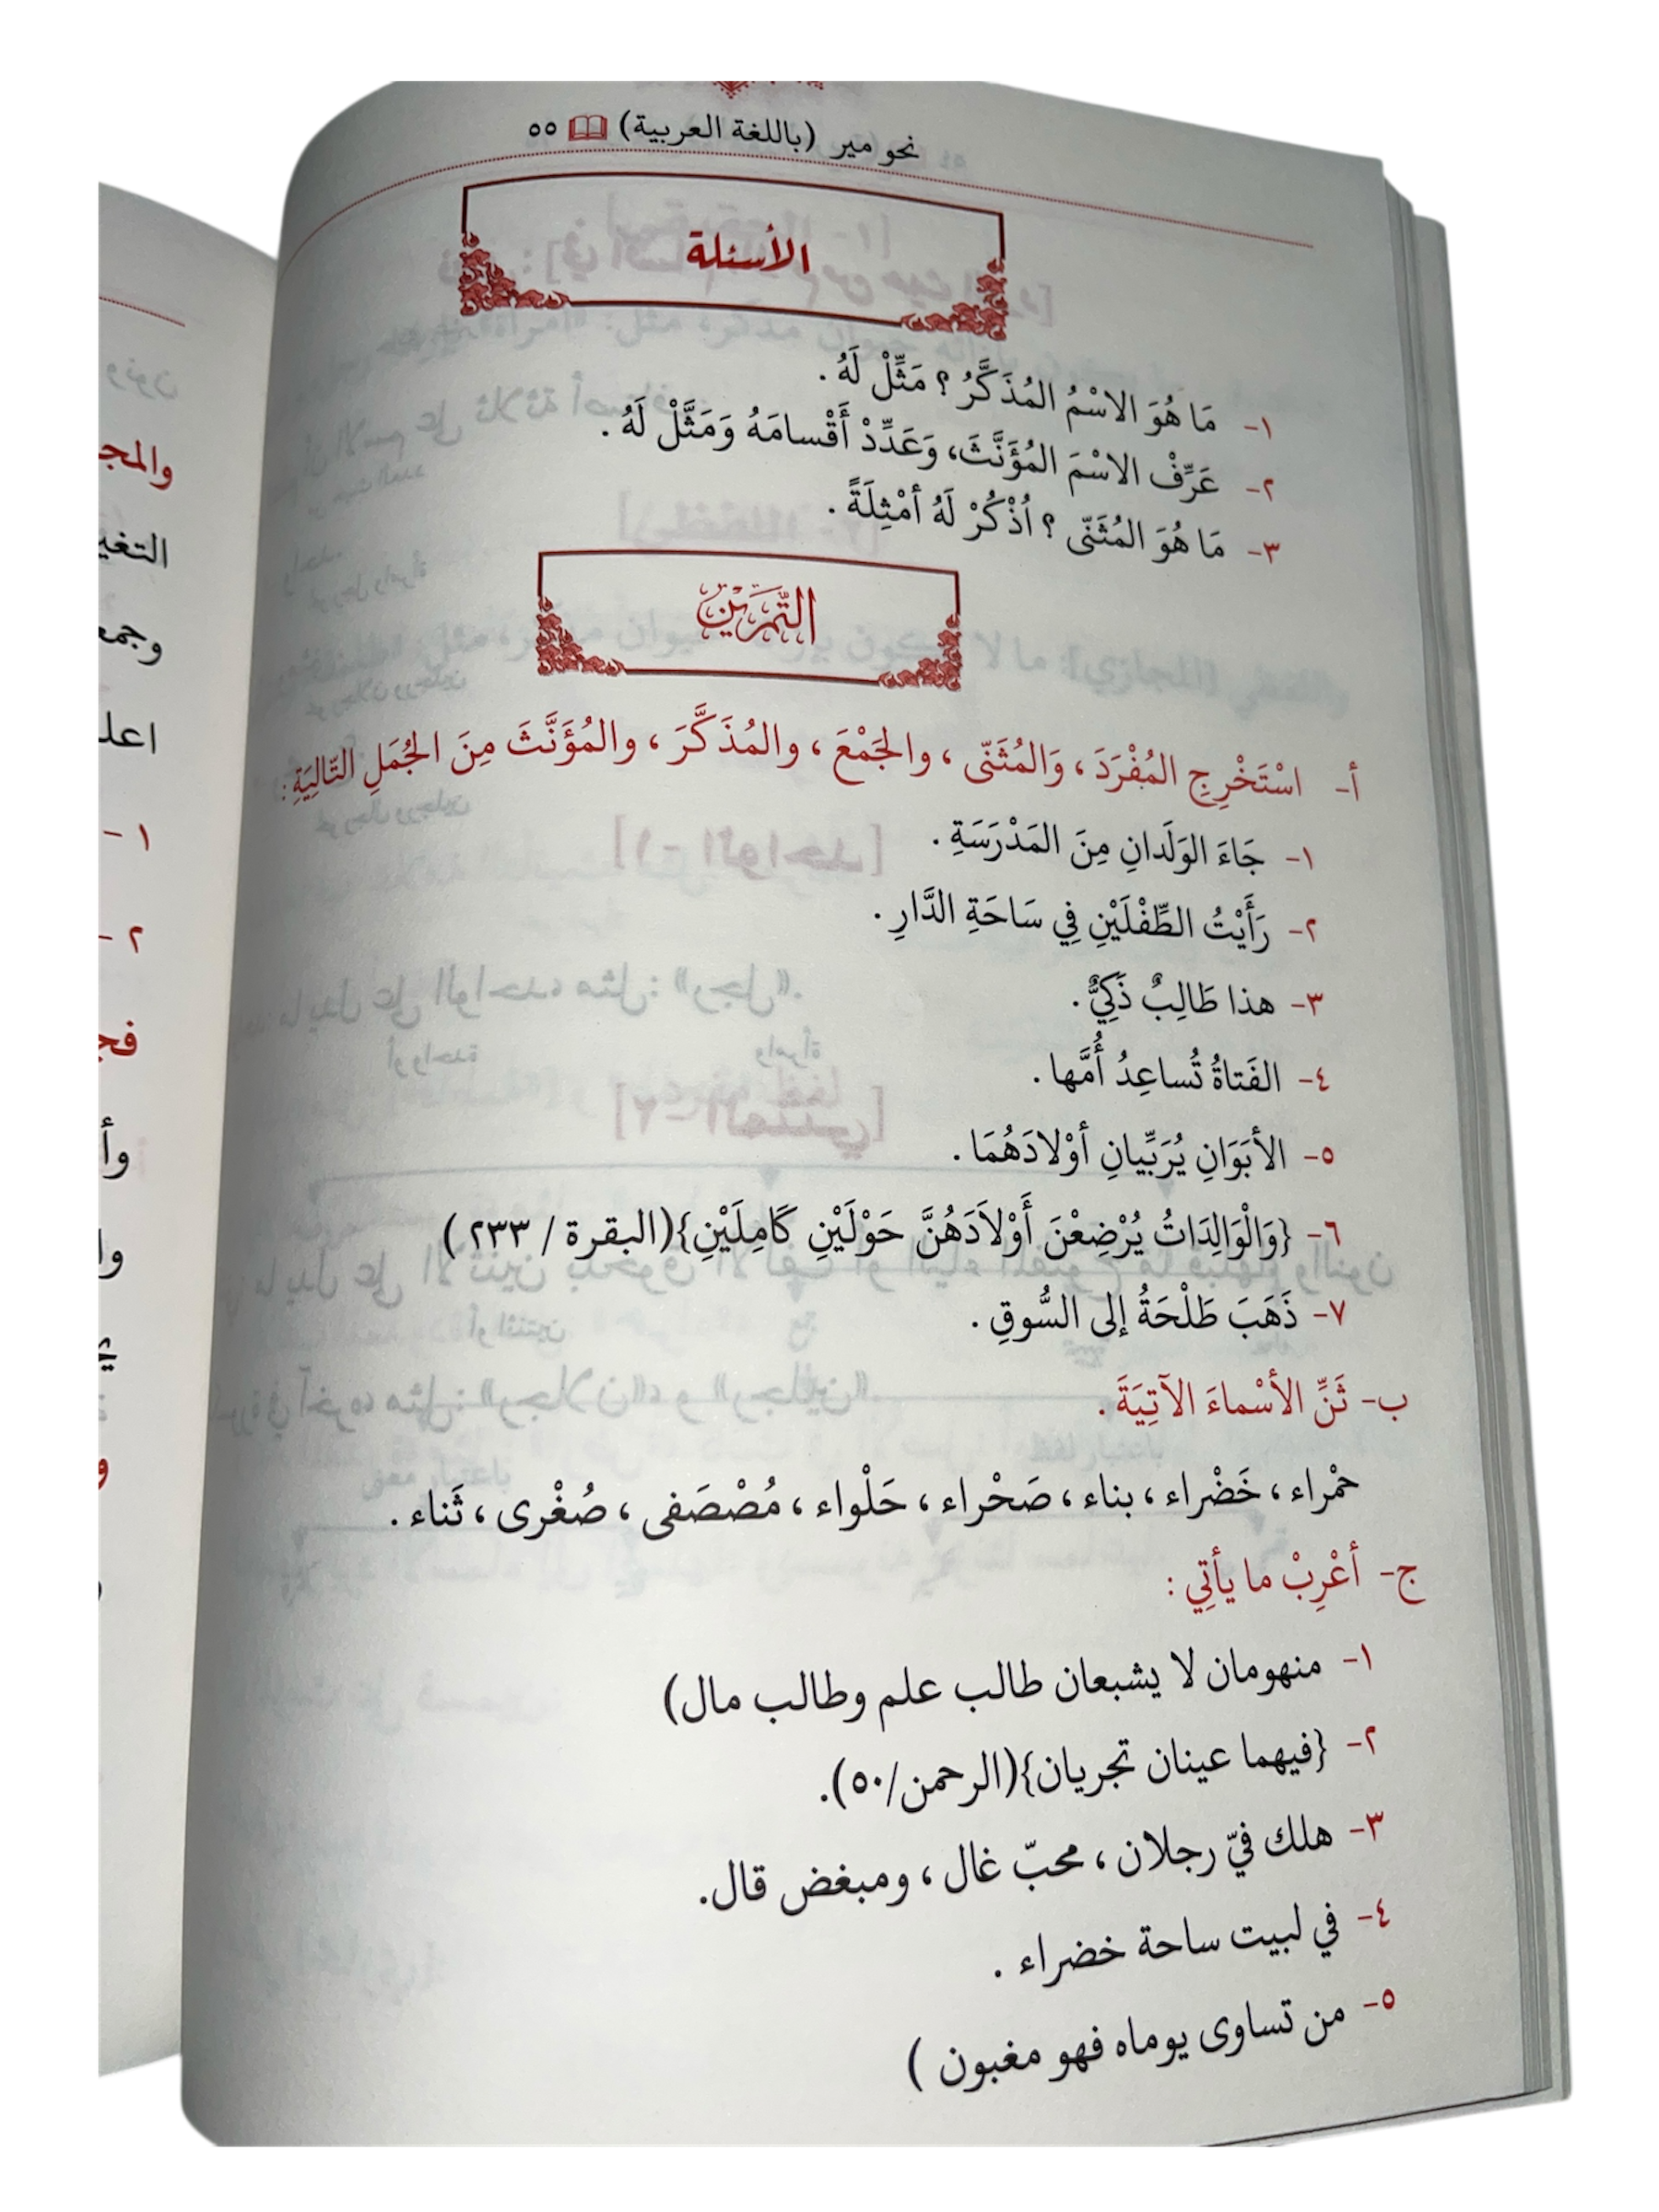 نحو مير (باللغة العربية) ٥٥
الأسئلة
١- مَا هُوَ الاسْمُ المُذَكَّرُ ؟ مَثِّلْ لَهُ .
٢- عَرِّفْ الاسْمَ المُؤَنَّثَ، وَعَدِّدْ أَقْسامَهُ وَمَثَّلْ لَهُ .
٣- مَا هُوَ المُثَنّى ؟ اُذْكُرْ لَهُ أمْثِلَةً .
التَّمْرَيْن
أ- اسْتَخْرِجِ المُفْرَدَ ، وَالمُثَنّى ، والجَمْعَ ، والمُذَكَّرَ ، والمُؤَنَّثَ مِنَ الجُمَلِ التّالِيَةِ :
١- جَاءَ الوَلَدانِ مِنَ المَدْرَسَةِ .
٢- رَأَيْتُ الطِّفْلَيْنِ فِي سَاحَةِ الدَّارِ .
٣- هذا طَالِبٌ ذَكِيٌّ .
٤- الفَتاةُ تُساعِدُ أُمَّها .
٥- الأبَوَانِ يُرَبِّيانِ أوْلادَهُمَا .
٦- {وَالْوَالِدَاتُ يُرْضِعْنَ أَوْلاَدَهُنَّ حَوْلَيْنِ كَامِلَيْنِ}(البقرة / ٢٣٣ )
٧- ذَهَبَ طَلْحَةُ إلى السُّوقِ .
ب- ثَنِّ الأسْماءَ الآتِيَةَ .
حمْراء ، خَضْراء ، بناء ، صَحْراء ، حَلْواء ، مُصْصَفى ، صُغْرى ، ثَناء .
ج- أعْرِبْ ما يأتِي :
١- منهومان لا يشبعان طالب علم وطالب مال)
٢- {فيهما عينان تجريان}(الرحمن/٥٠).
٣- هلك فيّ رجلان ، محبّ غال ، ومبغض قال.
٤- في لبيت ساحة خضراء .
٥- من تساوى يوماه فهو مغبون )
والمج
التغي
وجمع
اعل
١ -
٢ -
فج
وأ
وا